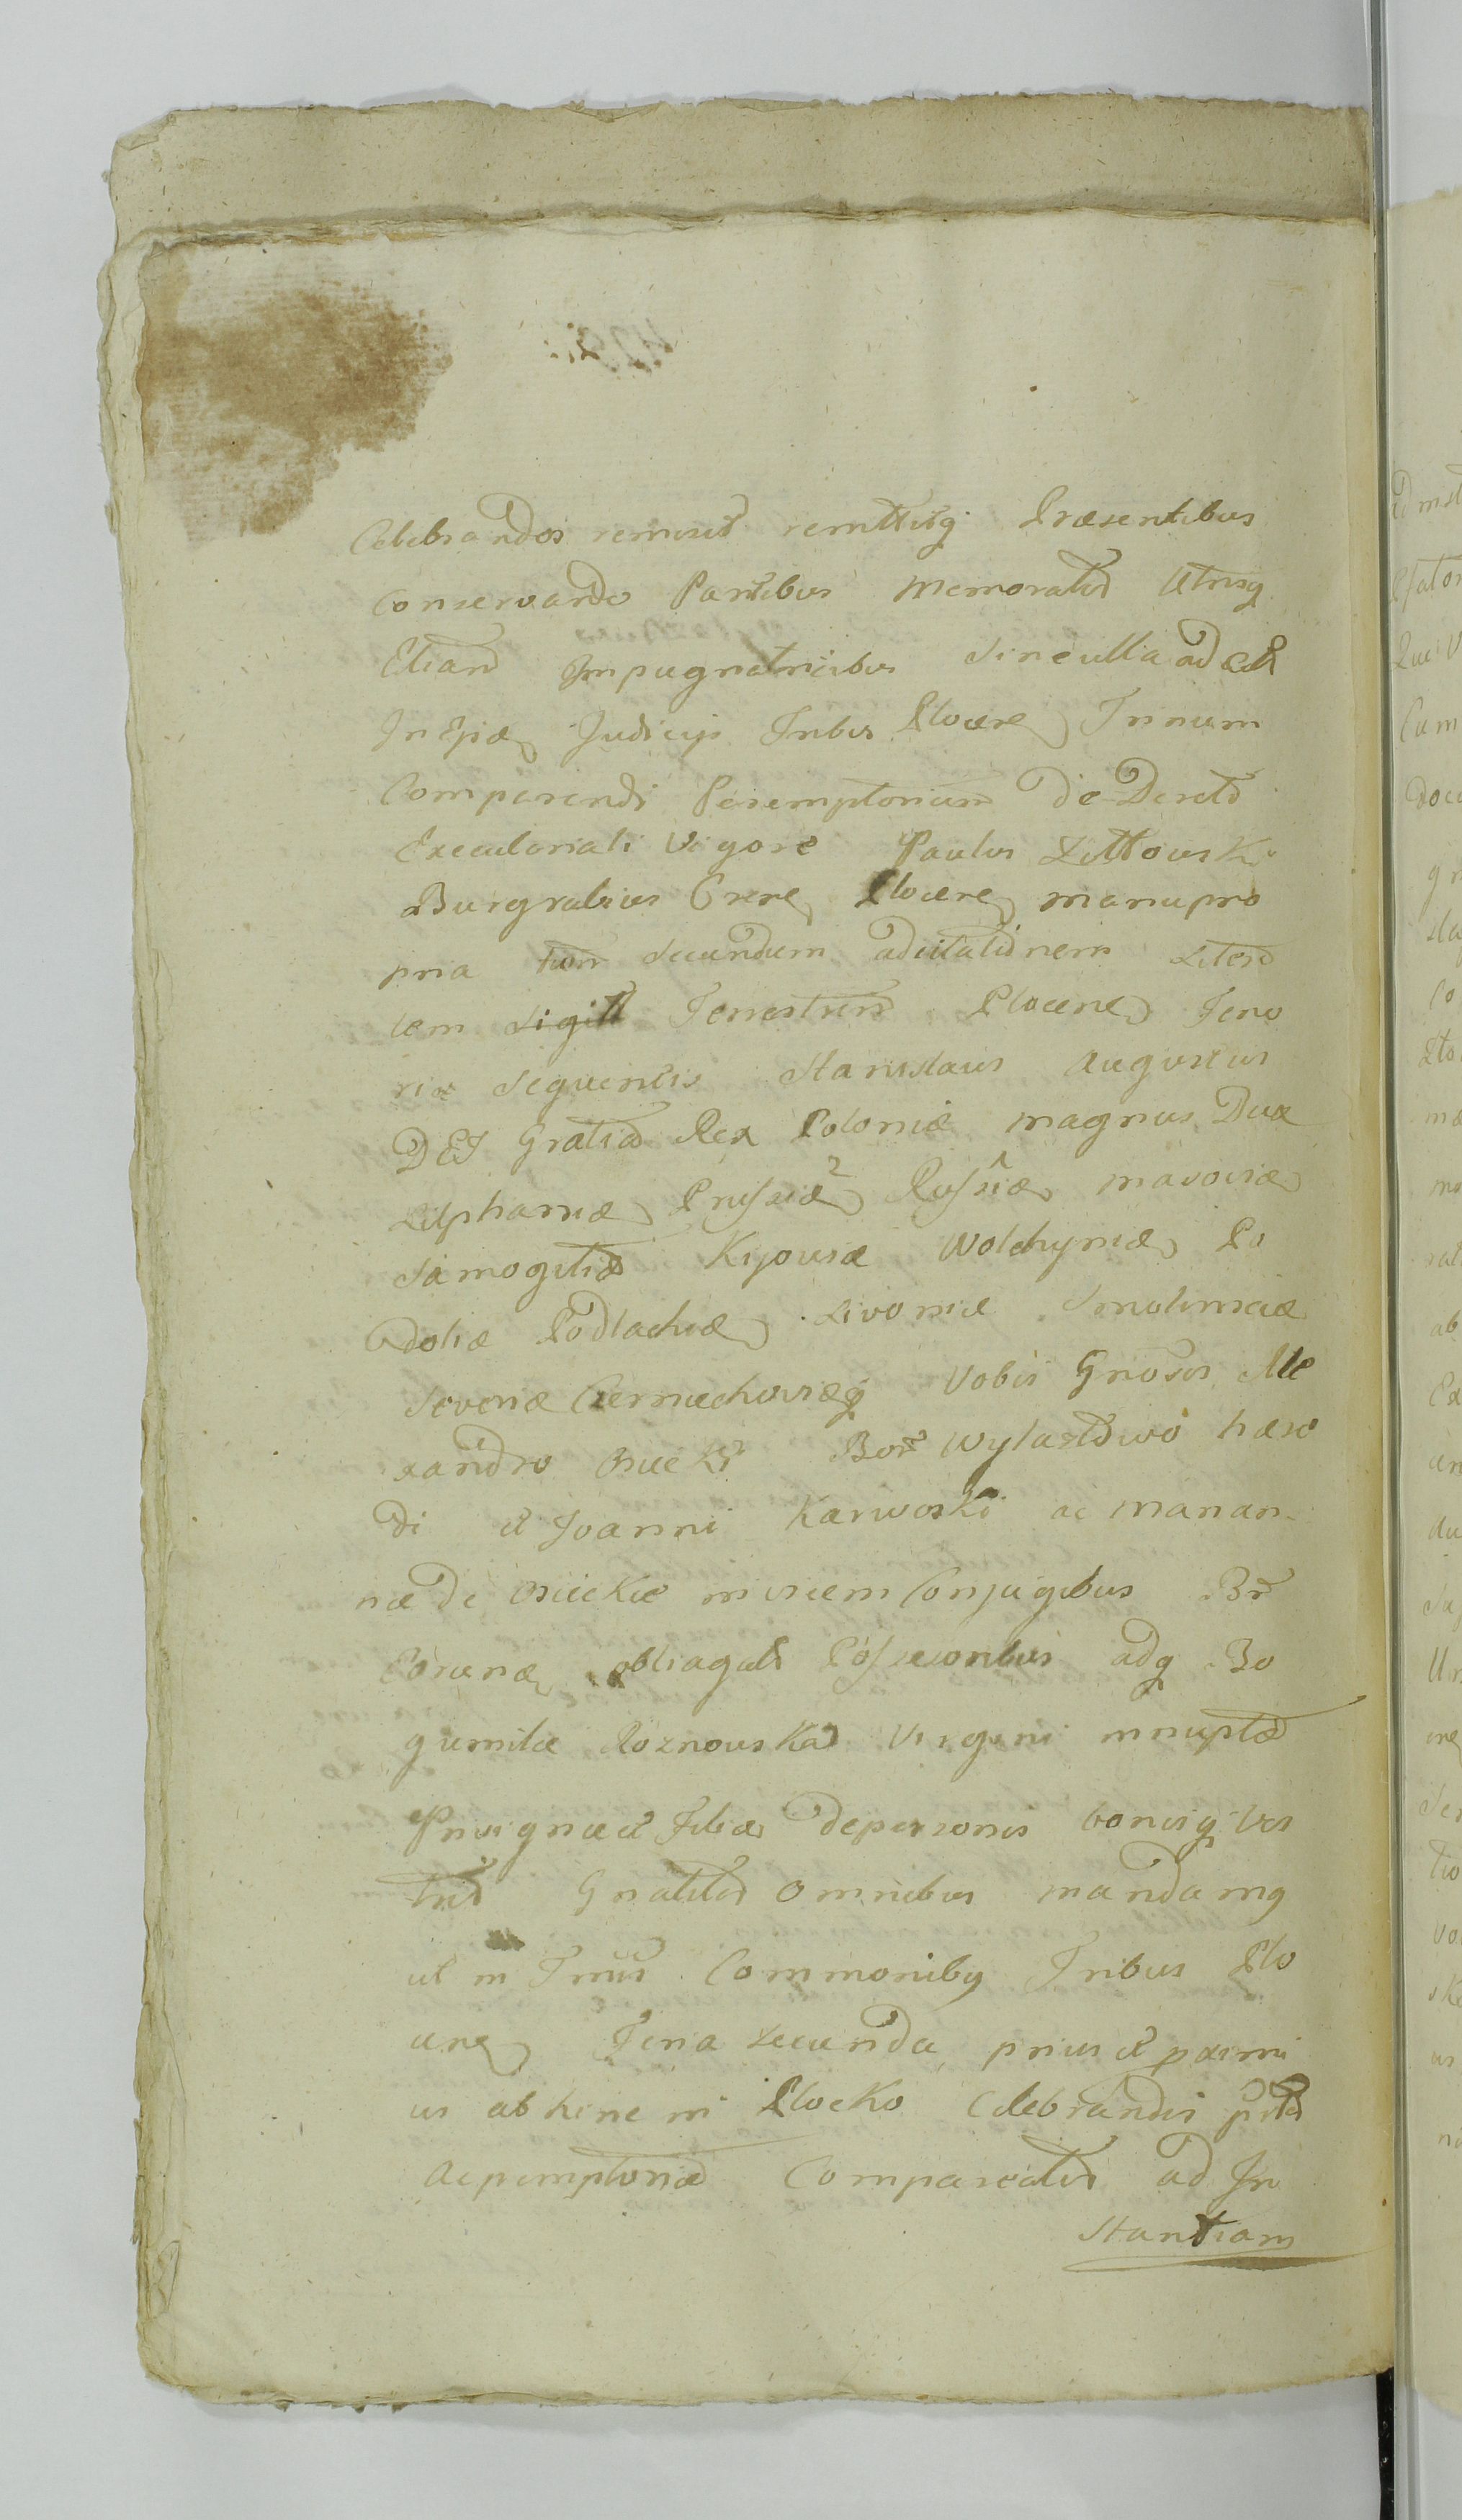 Celebrandos remisit remittitq Præsentibus
Conservando Partibus Memoratis Utrisq
Etiam Impugnatricibus Sine ulla ad
Judicijs Tribus Plocen Trinum
Comparendi Peremptorium De Decreto
Executoriali Vigore Paulus Littowski
Burgrabius Cren Plocen manu pro
pria Secundum ad citationem Liter
tem Sigill Terrestrem Plocen Teno
ris Sequentis Stanislaus Augustus
DEI Gratia Rex Poloniæ Magnus Dux
Lithaniæ Prussiæ 2 Russiæ 1 Masoviæ
Samogitiæ Kijoviæ Wolhyniæ Po
doliæ Podlachiæ Livoniæ Smolensciæ
Severiæ Czerniechoviæq Vobis Gnosis Ale
xandro Osiecki Bor Wylazłowo hære
di et Joanni Karwoski ac Marian
næ de Osieckie invicem Conjugibus Br
Eorunæ obliagat Possessoribus adq Bo
gumilæ Roznowska Virgini innuptæ
Privignæ et Filiæ de personis bonisq Ves
tris Gnalit Omnibus mandamq
ut in Trius Commonibq Tribus Plo
cen Feria Secunda prius et proximi
us ab hinc in Plocko Celebrandis
Ac peremptorie Compareatis ad In
Stantiam